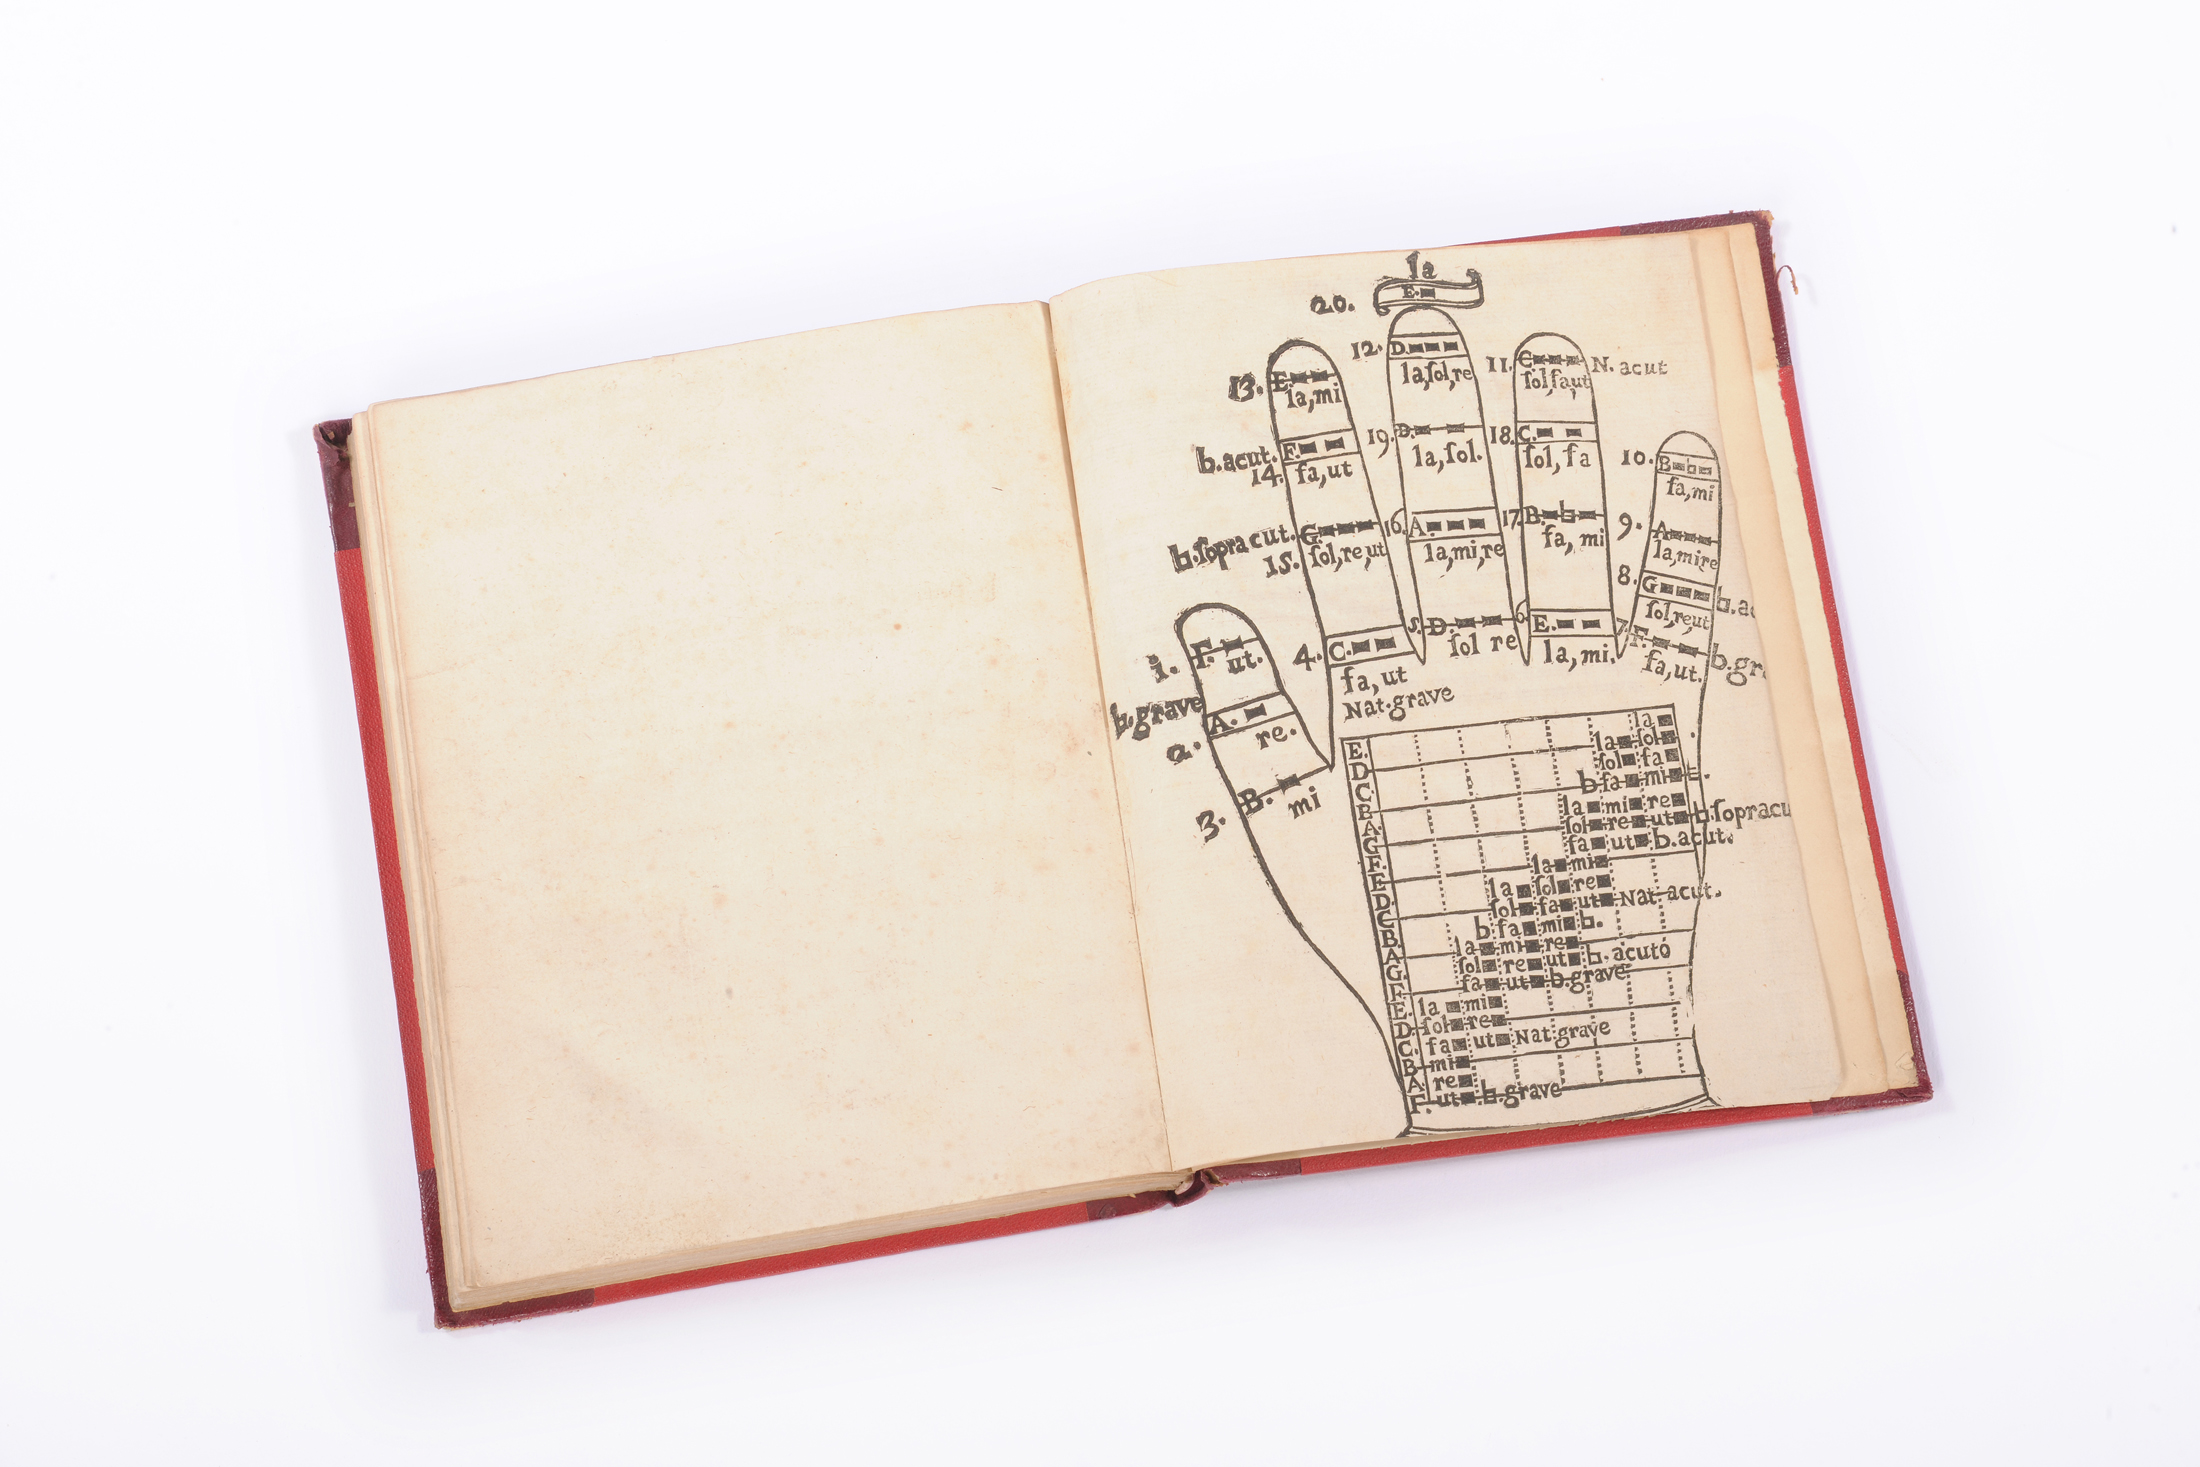 la
20. E.
12. D.
la,ſol,re
11. C. N. acut
ſol,fa,ut
13. E.
la,mi
b.acut. F.
14. fa,ut
19. D.
la,ſol.
18. C.
ſol,fa
10. B b
fa,mi
♮.ſopra cut. G.
15. ſol,re,ut
16. A.
la,mi,re
17. B. b
fa, mi
9. A
la,mi,re
8. G
ſol,re,ut
1. F.
ut.
♮.grave A.
2. re.
3. B.
mi
4. C.
fa,ut
Nat.grave
5. D.
ſol re
6. E.
la,mi.
7. F. b.gr
fa,ut.
E. la
D la ſol
C. ſol fa
B b fa mi ♮.
A. la mi re
G ſol re ut ♮.ſopracu
F. fa ut b.acut.
E la mi
D. la ſol re
C ſol fa ut Nat acut.
B. b fa mi ♮.
A la mi re
G ſol re ut ♮. acuto
F. fa ut b.grave
E. la mi
D. ſol re
C. fa ut Nat:grave
B mi
A re
F. ut ♮.grave